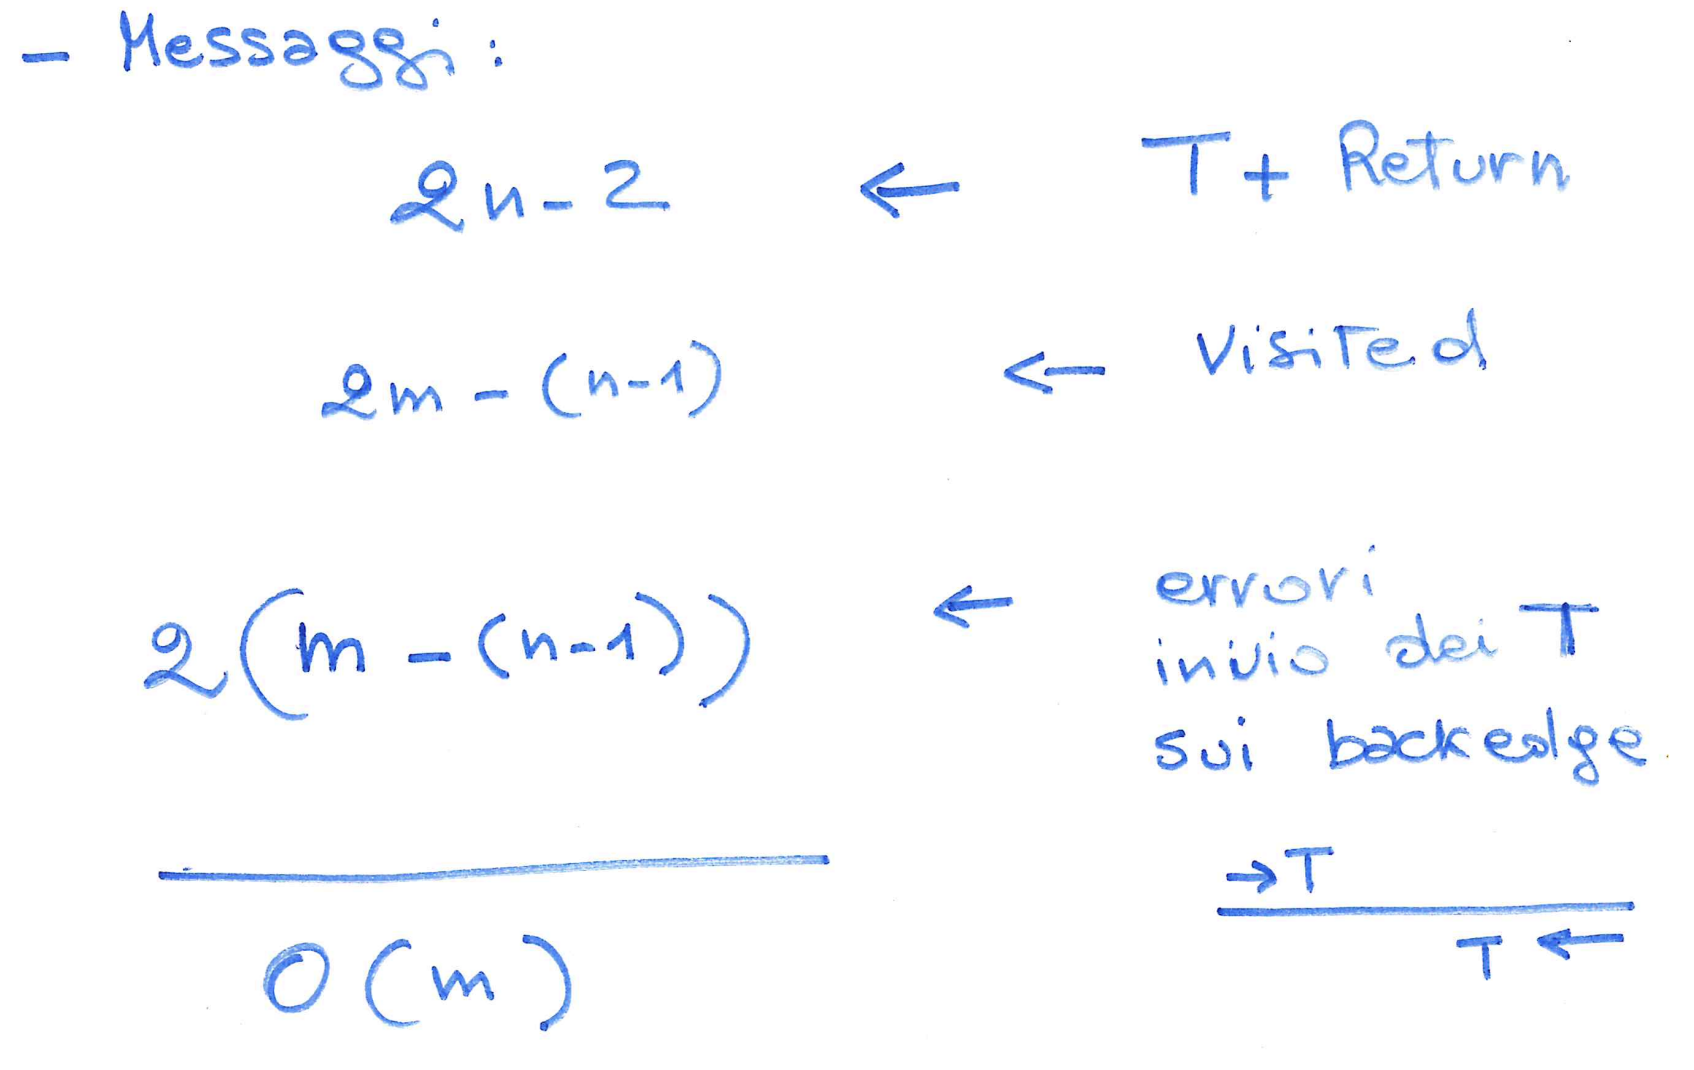 - Messaggi:
2n-2 ← T + Return
2m - (n-1) ← Visited
2(m - (n-1)) ← errori
invio dei T
sui backedge
→ T
T ←
O(m)